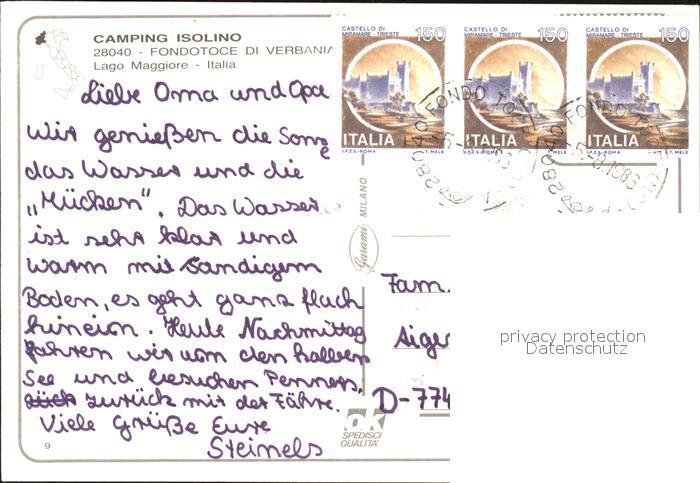 CAMPING ISOLINO
28040 - FONDOTOCE DI VERBANIA
Lago Maggiore - Italia
Liebe Oma und Opa
Wir genießen die Sonne
das Wasser und die
„Mücken“. Das Wasser
ist sehr klar und
warm mit sandigem
Boden, es geht ganz flach
hinein. Heute Nachmittag
fahren wir um den halben
See und besuchen Penners,
zurück mit der Fähre.
Viele Grüße Eure
Steinels
9
CASTELLO DI MIRAMARE - TRIESTE 150
ITALIA
I.P.Z.S. - ROMA T. MELE
CASTELLO DI MIRAMARE - TRIESTE 150
ITALIA
I.P.Z.S. - ROMA T. MELE
CASTELLO DI MIRAMARE - TRIESTE 150
ITALIA
I.P.Z.S. - ROMA T. MELE
28040 FONDO TOCE
28040 FONDO TOCE
Garami MILANO
Fam.
D-774
privacy protection
Datenschutz
ok
SPEDISCI
QUALITA'